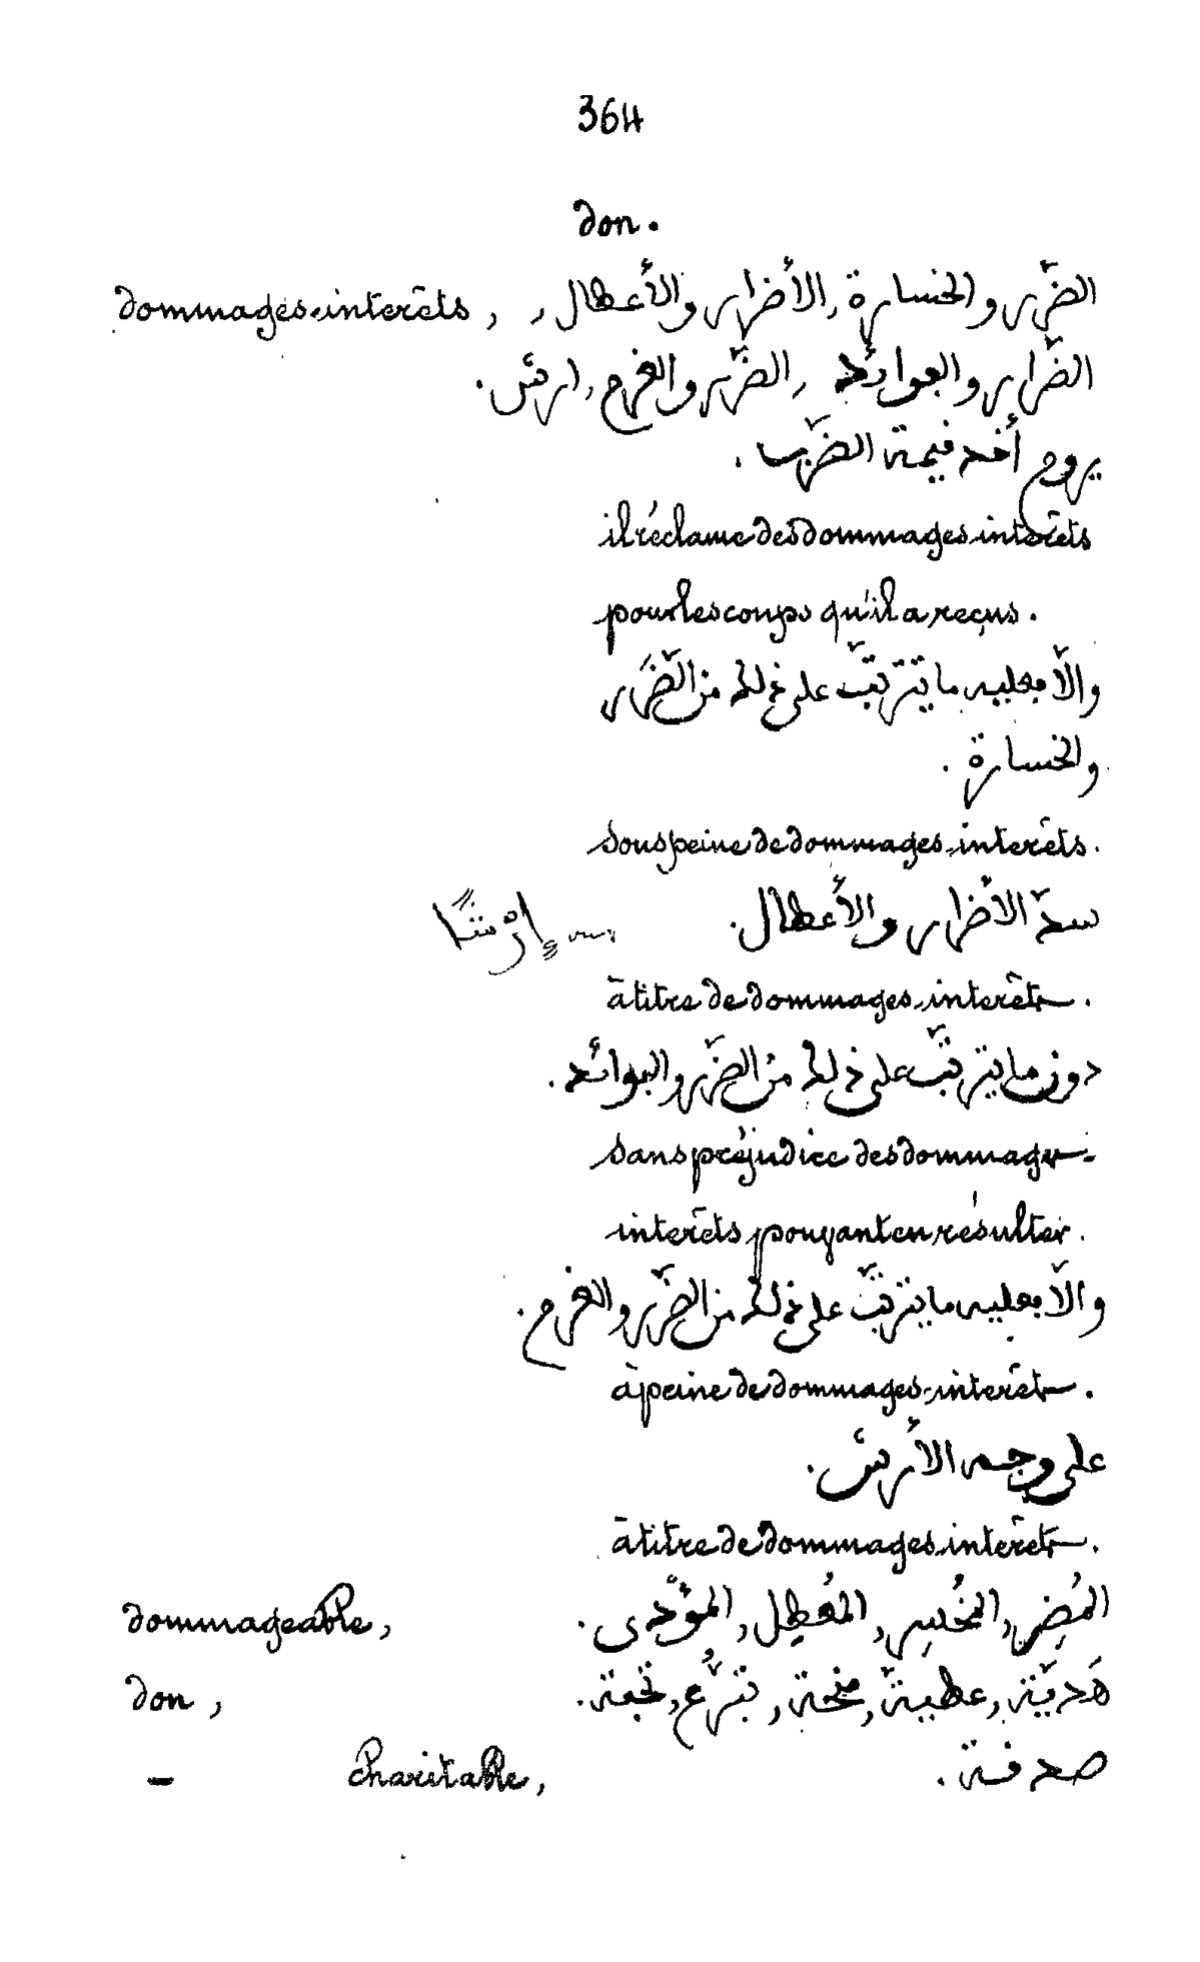 364
don.
dommages-interêts, الضّرر والخسارة, الأضرار والأعطال,
الضّرار والعوائد, الضّرر والغرم, ارش.
يروم أخد قيمة الضّرب.
il réclame des dommages interêts
pour les coups qu'il a reçus.
والاّ فعليه ما يترتّب على ذلك من الضَّرر
والخسارة.
sous peine de dommages-interêts.
سدّ الأضرار والأعطال. إرْشًا
à titre de dommages-interêts.
دون ما يترتّب على ذلك من الضّرر والعوائد.
sans préjudice des dommages-
interêts pouvant en résulter.
والاّ فعليه ما يترتّب على ذلك من الضّرر والغرم.
à peine de dommages-interêts.
على وجه الأرش.
à titre de dommages interêts.
dommageable, المُضِر, المُخْسِر, المُعْطِل, المؤذّى.
don, هَديّة, عطيّة, منحة, تبرُّع, تحفة.
– charitable, صدقة.